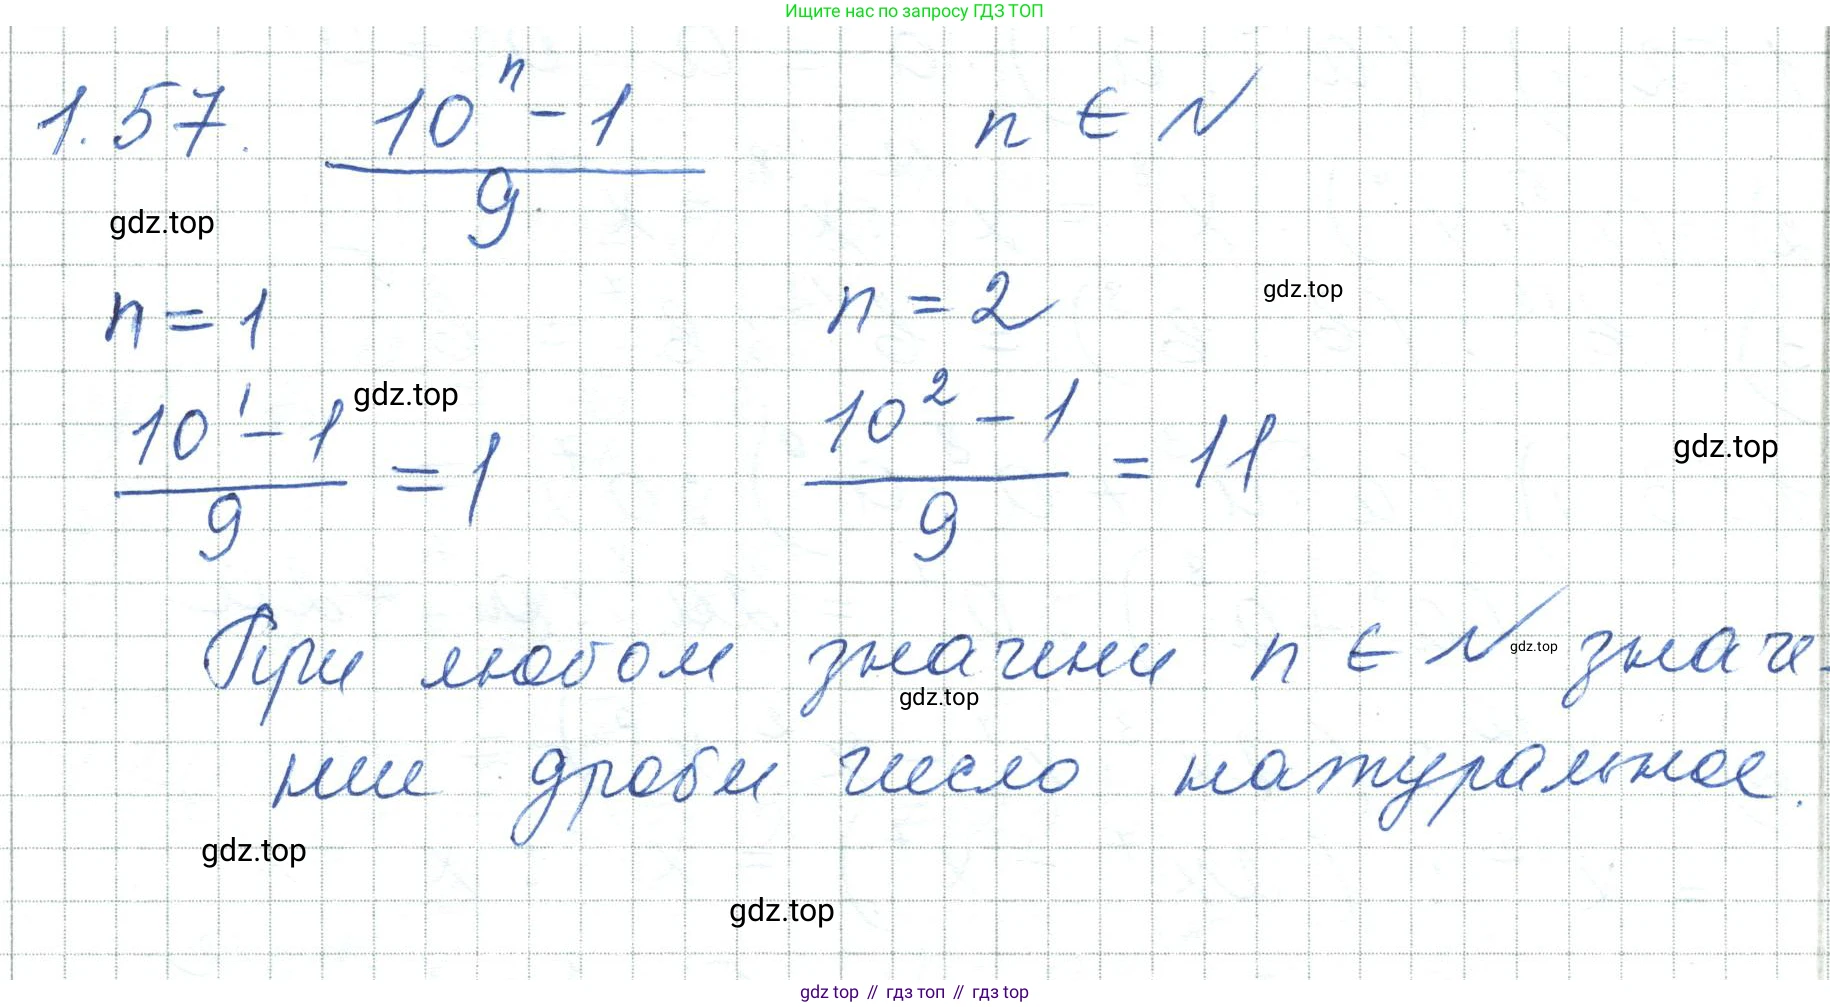 Ищите нас по запросу ГДЗ ТОП
1.57. (10^n - 1)/9 n ∈ N
gdz.top
n = 1 n = 2 gdz.top
gdz.top
(10^1 - 1)/9 = 1 (10^2 - 1)/9 = 11 gdz.top
При любом значени n ∈ N gdz.top значе-
gdz.top
нии дроби число натуральное.
gdz.top
gdz.top
gdz top // гдз топ // гдз top